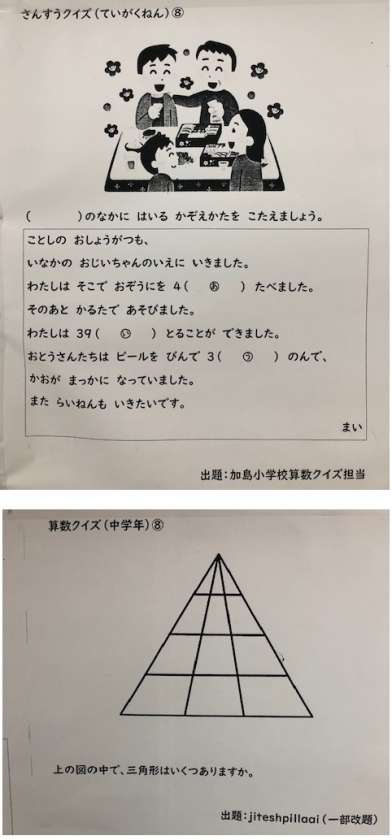 さんすうクイズ(ていがくねん)⑧
(　　　)のなかに はいる かぞえかたを こたえましょう。
ことしの おしょうがつも、
いなかの おじいちゃんのいえに いきました。
わたしは そこで おぞうにを 4(　あ　)たべました。
そのあと かるたで あそびました。
わたしは 39(　い　)とることが できました。
おとうさんたちは ビールを びんで 3(　う　)のんで、
かおが まっかに なっていました。
また らいねんも いきたいです。
まい
出題：加島小学校算数クイズ担当
算数クイズ(中学年)⑧
上の図の中で、三角形はいくつありますか。
出題：jiteshpillaai(一部改題)